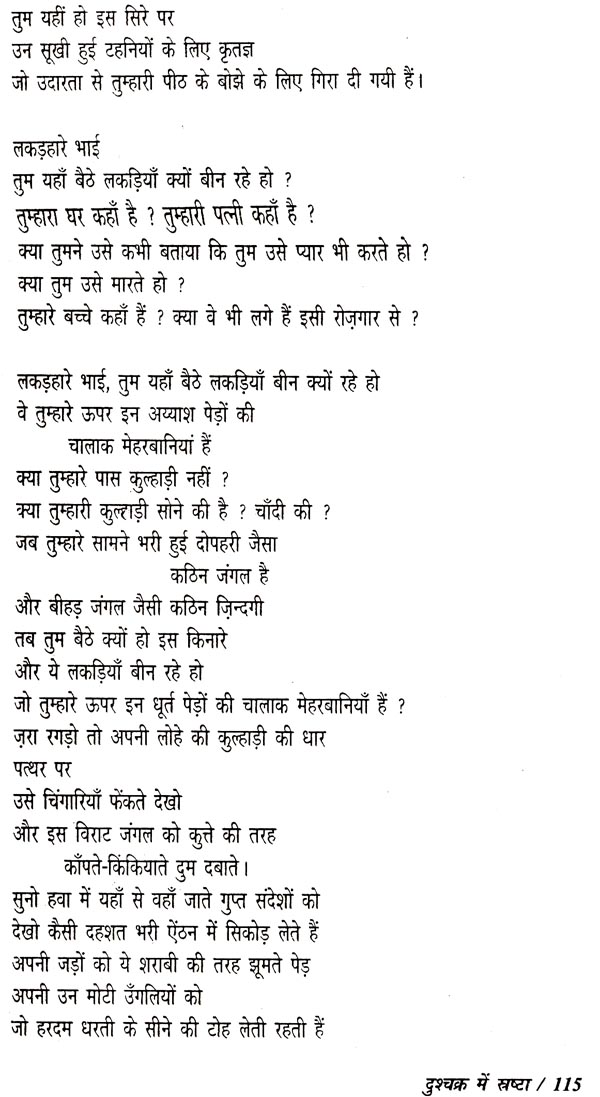 तुम यहीं हो इस सिरे पर
उन सूखी हुई टहनियों के लिए कृतज्ञ
जो उदारता से तुम्हारी पीठ के बोझे के लिए गिरा दी गयी हैं।
लकड़हारे भाई
तुम यहाँ बैठे लकड़ियाँ क्यों बीन रहे हो ?
तुम्हारा घर कहाँ है ? तुम्हारी पत्नी कहाँ है ?
क्या तुमने उसे कभी बताया कि तुम उसे प्यार भी करते हो ?
क्या तुम उसे मारते हो ?
तुम्हारे बच्चे कहाँ हैं ? क्या वे भी लगे हैं इसी रोज़गार से ?
लकड़हारे भाई, तुम यहाँ बैठे लकड़ियाँ बीन क्यों रहे हो
वे तुम्हारे ऊपर इन अय्याश पेड़ों की
चालाक मेहरबानियां हैं
क्या तुम्हारे पास कुल्हाड़ी नहीं ?
क्या तुम्हारी कुल्हाड़ी सोने की है ? चाँदी की ?
जब तुम्हारे सामने भरी हुई दोपहरी जैसा
कठिन जंगल है
और बीहड़ जंगल जैसी कठिन ज़िन्दगी
तब तुम बैठे क्यों हो इस किनारे
और ये लकड़ियाँ बीन रहे हो
जो तुम्हारे ऊपर इन धूर्त पेड़ों की चालाक मेहरबानियाँ हैं ?
ज़रा रगड़ो तो अपनी लोहे की कुल्हाड़ी की धार
पत्थर पर
उसे चिंगारियाँ फेंकते देखो
और इस विराट जंगल को कुत्ते की तरह
काँपते-किंकियाते दुम दबाते।
सुनो हवा में यहाँ से वहाँ जाते गुप्त संदेशों को
देखो कैसी दहशत भरी ऐंठन में सिकोड़ लेते हैं
अपनी जड़ों को ये शराबी की तरह झूमते पेड़
अपनी उन मोटी उँगलियों को
जो हरदम धरती के सीने की टोह लेती रहती हैं
दुश्चक्र में स्रष्टा / 115